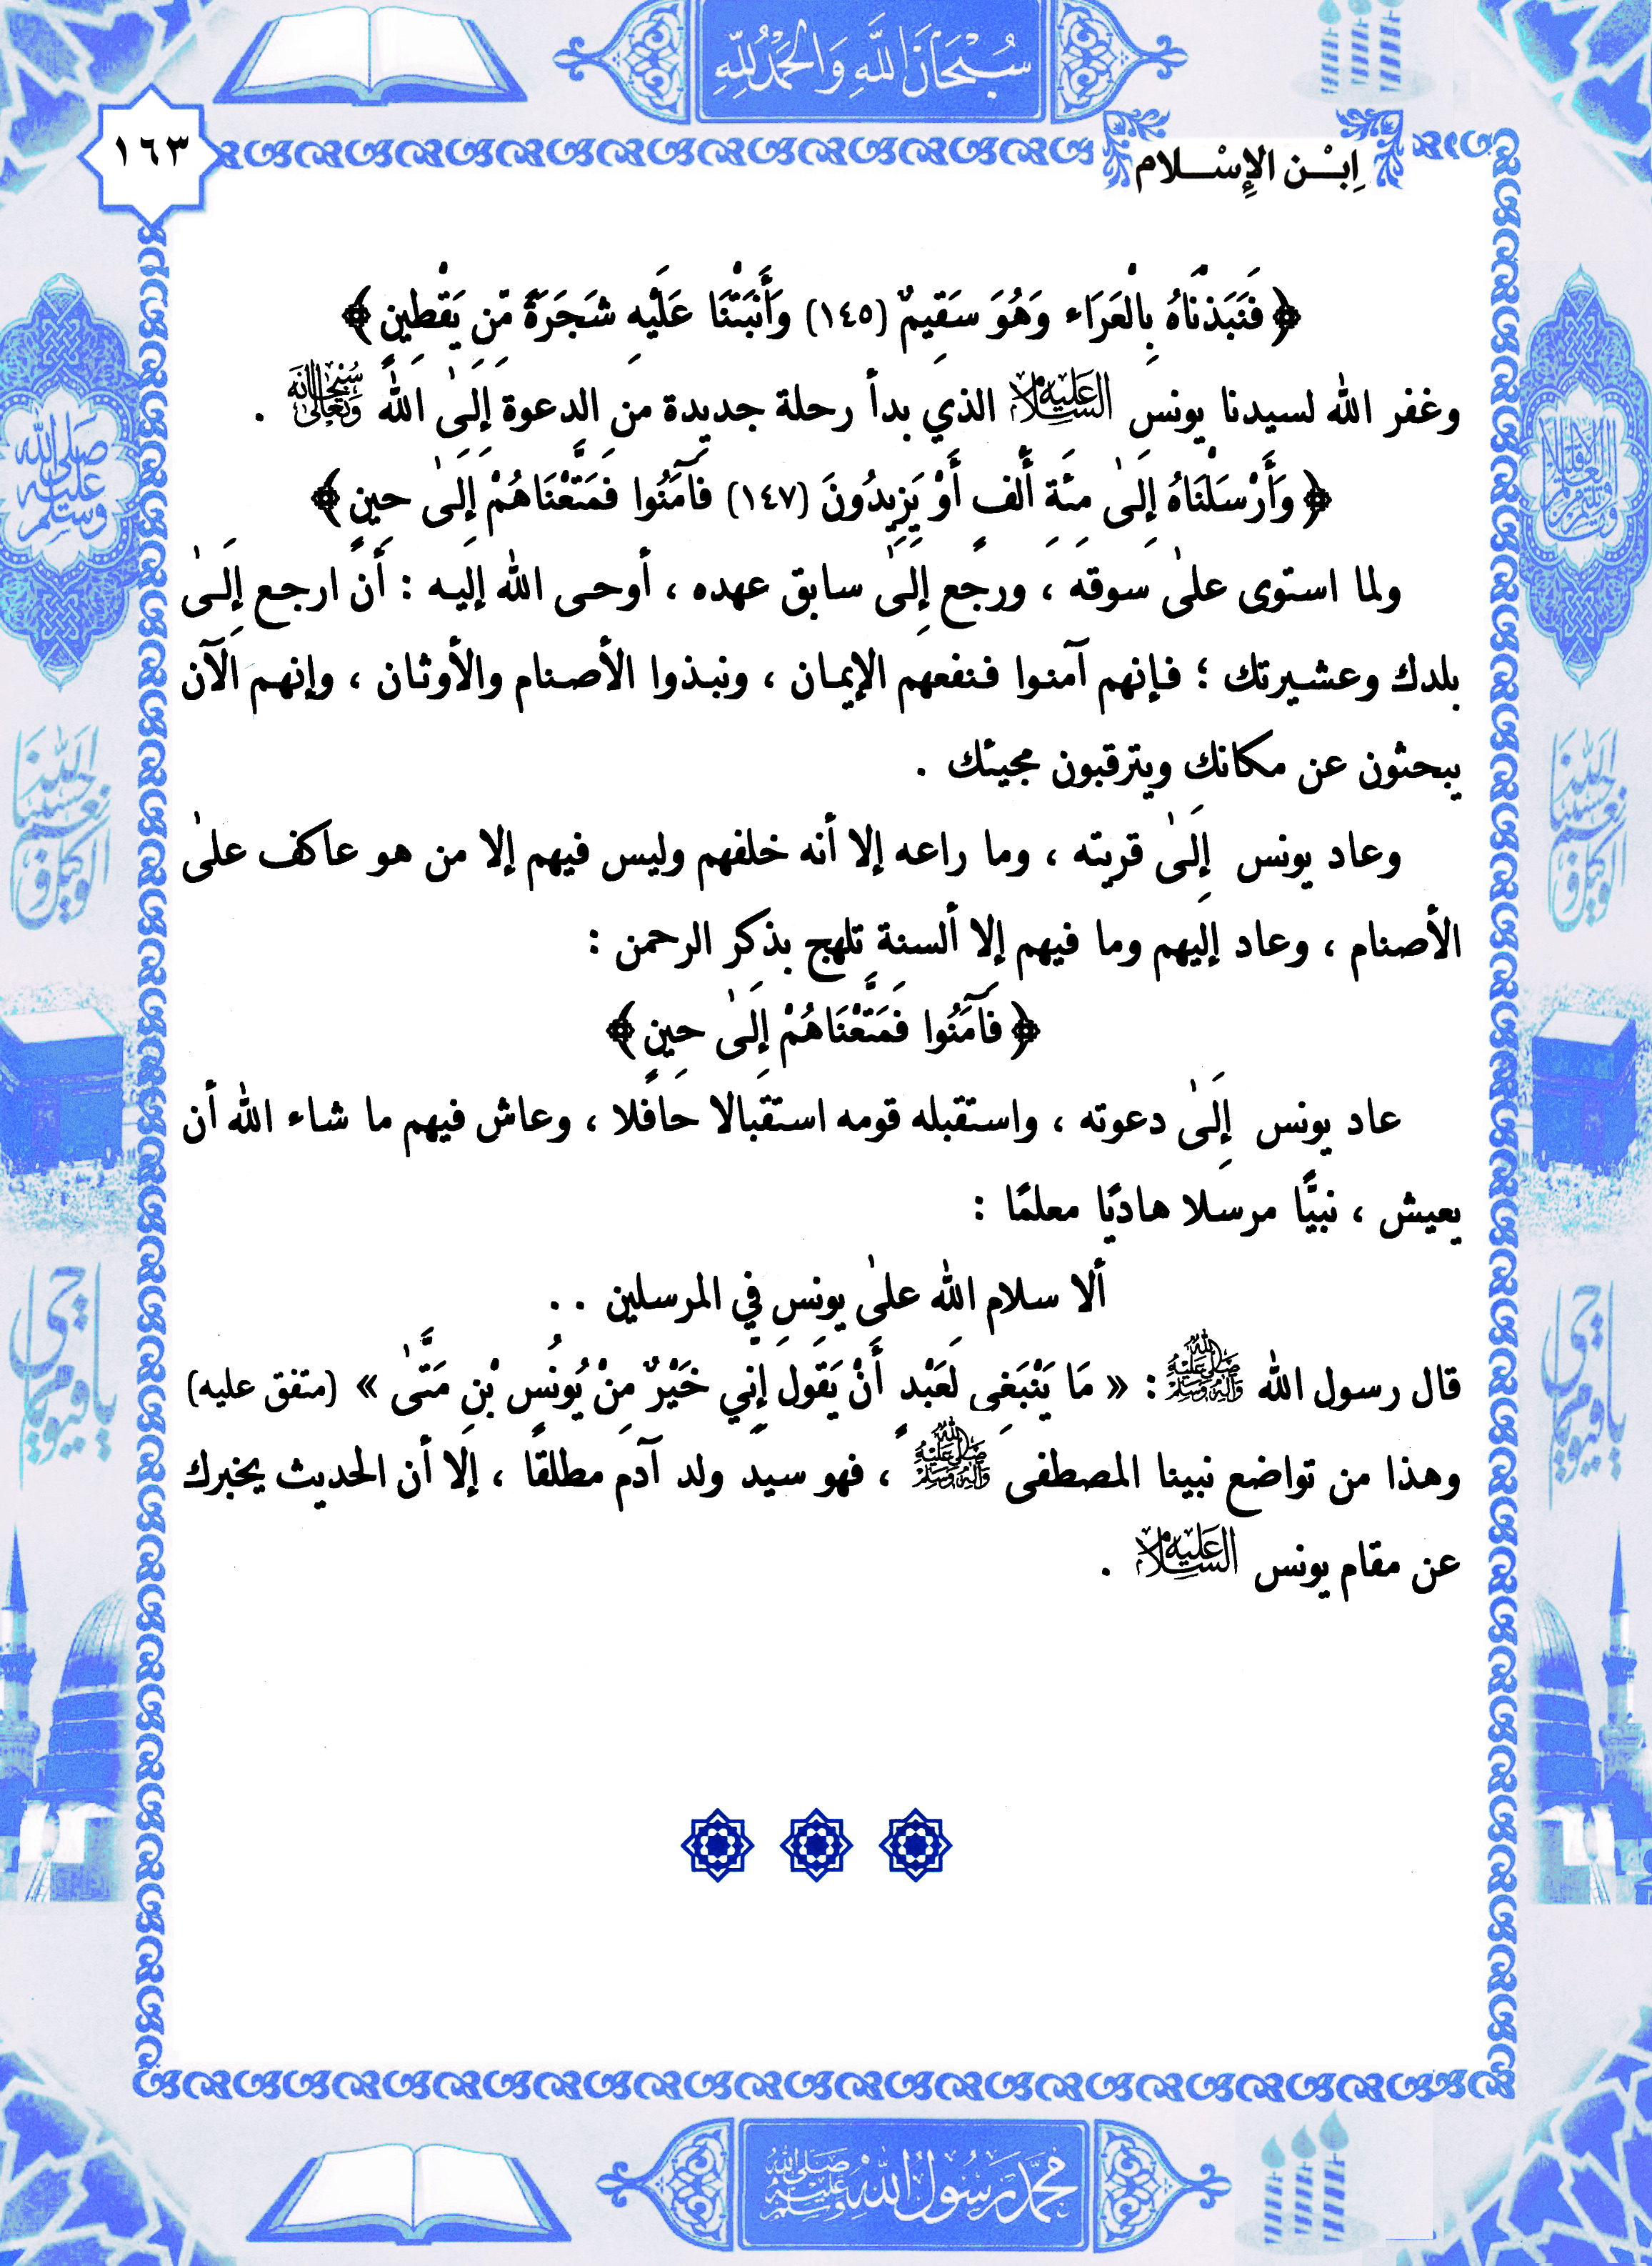 سُبْحَانَ اللَّهِ وَالْحَمْدُ لِلَّهِ
١٦٣
اِبْـــن الإِسْـــلام
﴿ فَنَبَذْنَاهُ بِالْعَرَاءِ وَهُوَ سَقِيمٌ (١٤٥) وَأَنبَتْنَا عَلَيْهِ شَجَرَةً مِّن يَقْطِينٍ ﴾
وغفر الله لسيدنا يونس عليه السلام الذي بدأ رحلة جديدة من الدعوة إِلَىٰ الله سبحانه وتعالى .
﴿ وَأَرْسَلْنَاهُ إِلَىٰ مِئَةِ أَلْفٍ أَوْ يَزِيدُونَ (١٤٧) فَآمَنُوا فَمَتَّعْنَاهُمْ إِلَىٰ حِينٍ ﴾
ولما استوى علىٰ سوقه ، ورجع إِلَىٰ سابق عهده ، أوحى الله إليه : أن ارجع إِلَىٰ
بلدك وعشيرتك ؛ فإنهم آمنوا فنفعهم الإيمان ، ونبذوا الأصنام والأوثان ، وإنهم الآن
يبحثون عن مكانك ويترقبون مجيئك .
وعاد يونس إِلَىٰ قريته ، وما راعه إلا أنه خلفهم وليس فيهم إلا من هو عاكف علىٰ
الأصنام ، وعاد إليهم وما فيهم إلا ألسنة تلهج بذكر الرحمن :
﴿ فَآمَنُوا فَمَتَّعْنَاهُمْ إِلَىٰ حِينٍ ﴾
عاد يونس إِلَىٰ دعوته ، واستقبله قومه استقبالا حافلا ، وعاش فيهم ما شاء الله أن
يعيش ، نبيًّا مرسلا هاديًا معلمًا :
ألا سلام الله علىٰ يونس في المرسلين . .
قال رسول الله ﷺ : « مَا يَنْبَغِي لِعَبْدٍ أَنْ يَقُولَ إِنِّي خَيْرٌ مِنْ يُونُسِ بْنِ مَتَّىٰ » (متفق عليه)
وهذا من تواضع نبينا المصطفى ﷺ ، فهو سيد ولد آدم مطلقًا ، إلا أن الحديث يخبرك
عن مقام يونس عليه السلام .
صلى الله عليه وسلم
حسبنا الله ونعم الوكيل
حسبنا الله ونعم الوكيل
يا حي يا قيوم
يا حي يا قيوم
محمد رسول الله صلى الله عليه وسلم